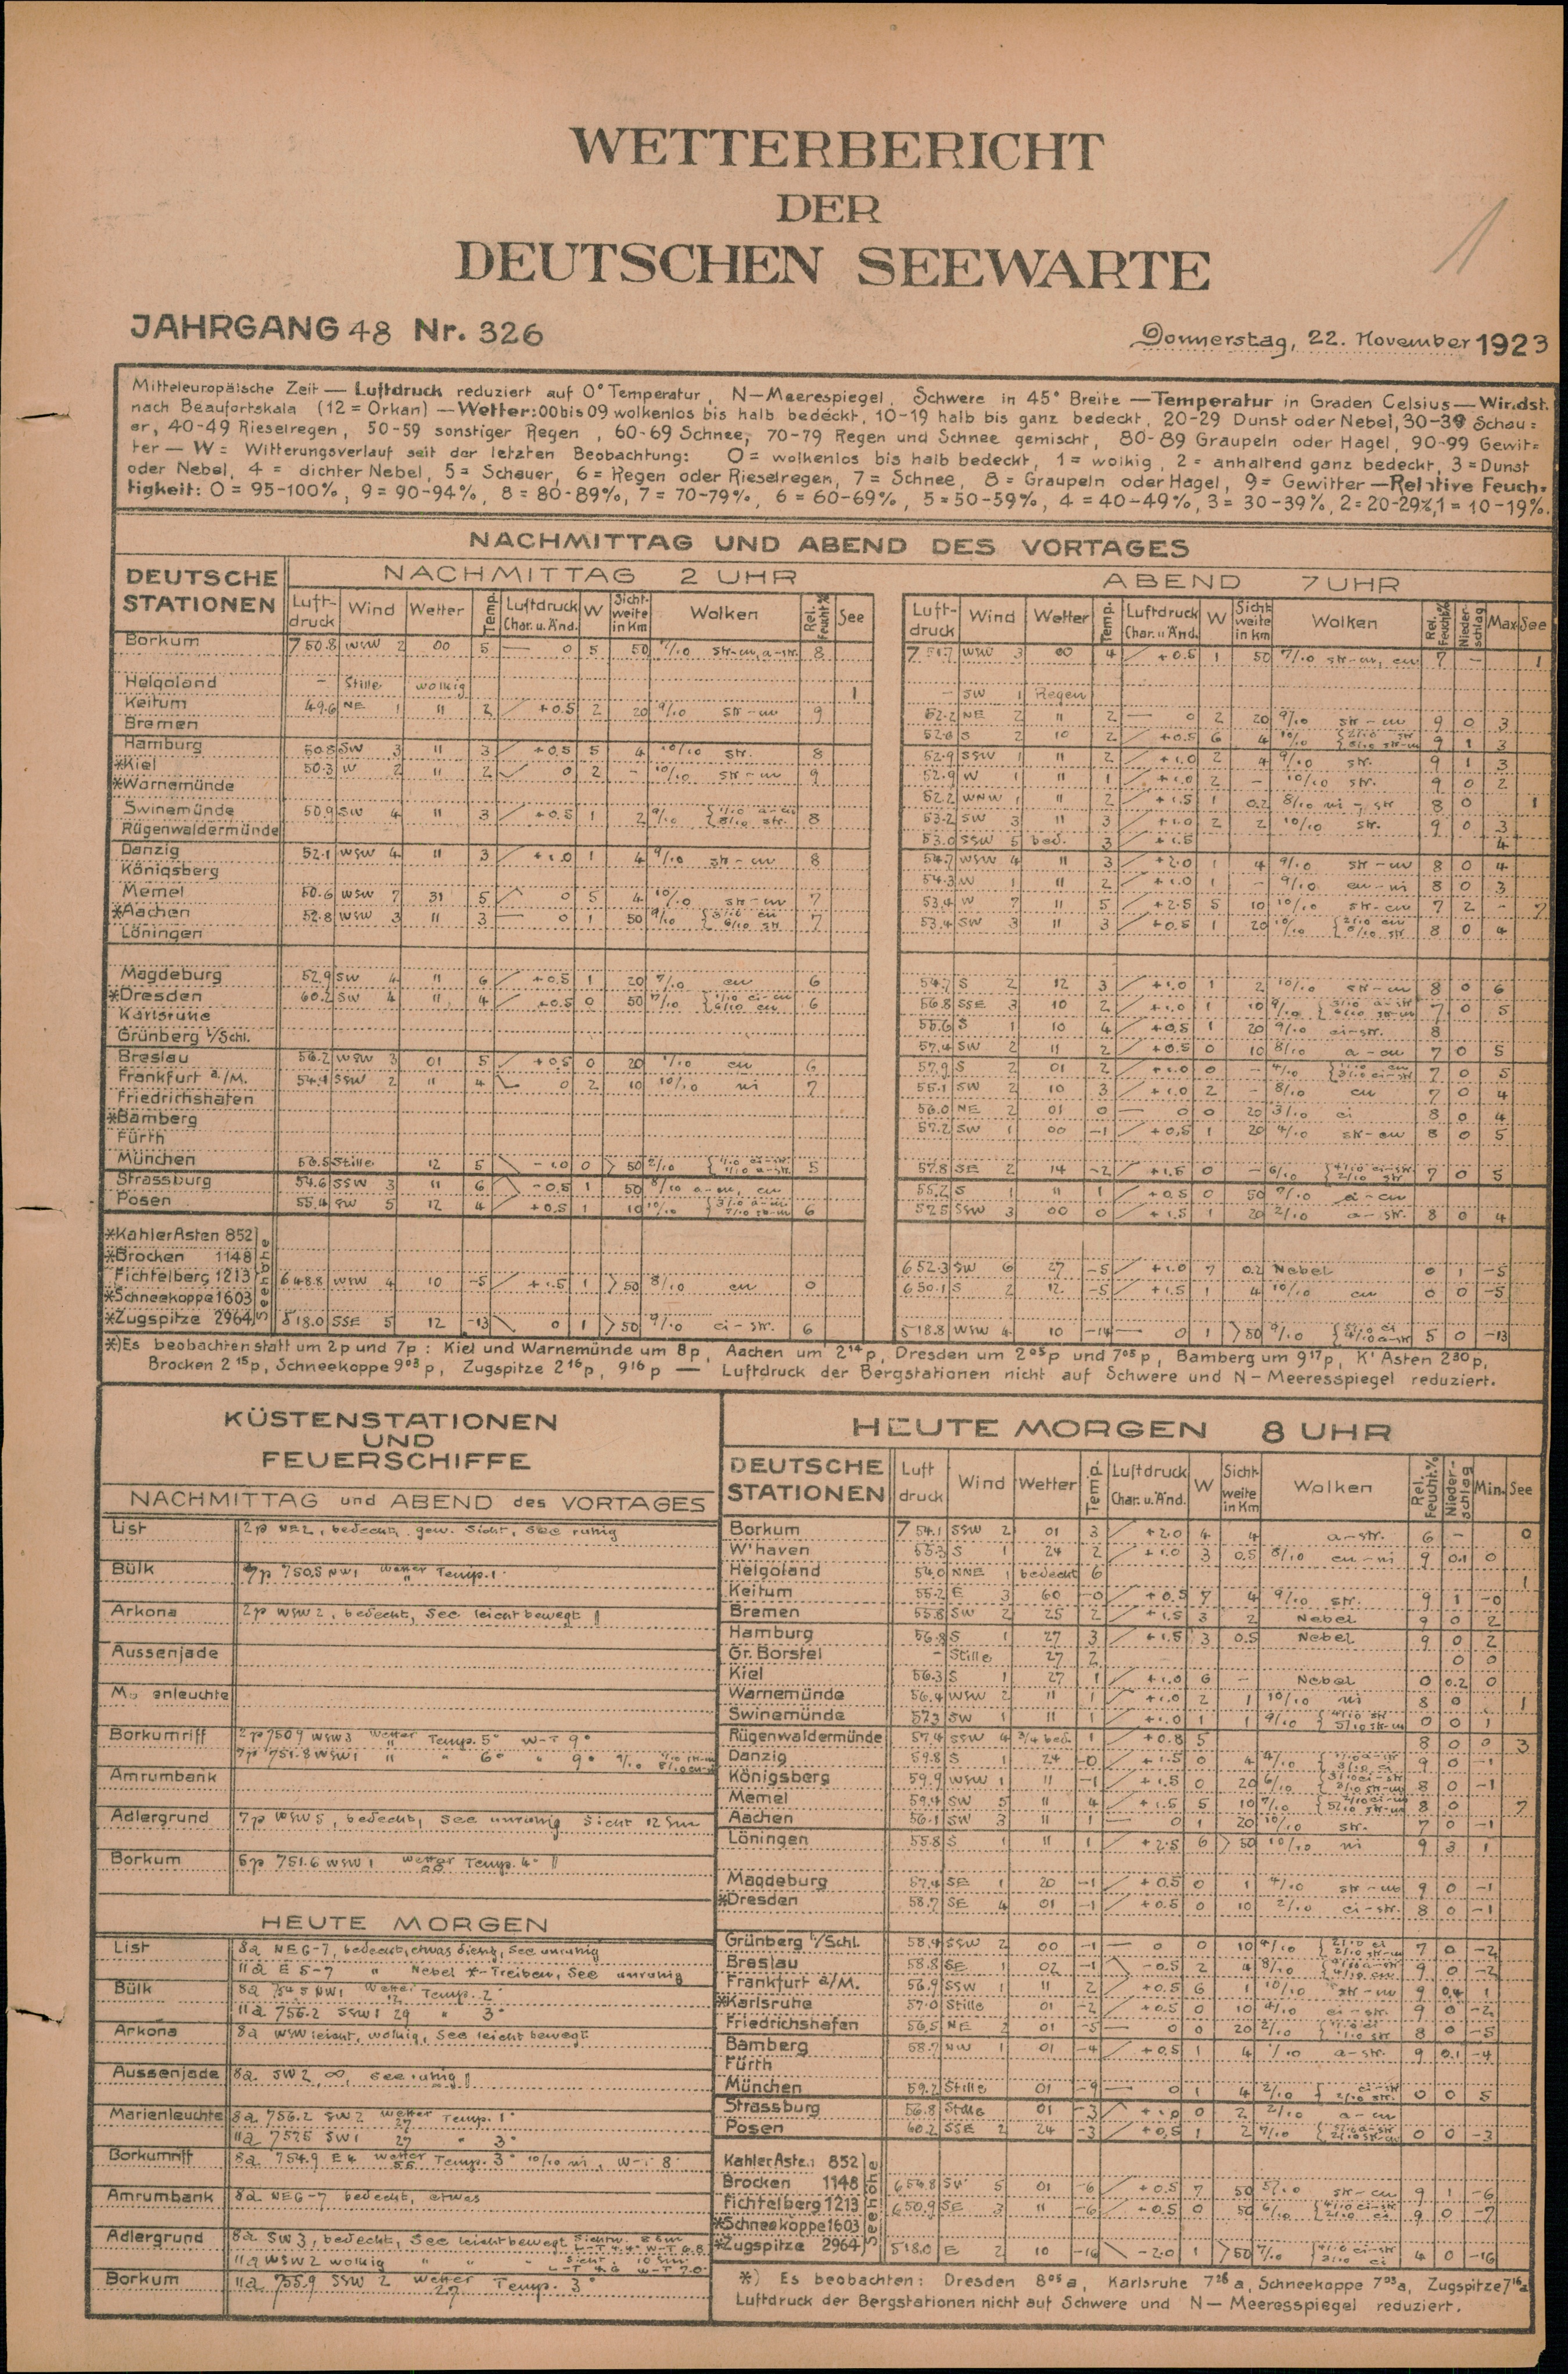 WETTERBERICHT
DER
DEUTSCHEN SEEWARTE
JAHRGANG 48 Nr. 326
Donnerstag, 22. November 1923
Mitteleuropäische Zeit — Luftdruck reduziert auf 0° Temperatur, N—Meerespiegel, Schwere in 45° Breite — Temperatur in Graden Celsius — Wir.dst.
nach Beaufortskala (12 = Orkan) — Wetter: 00 bis 09 wolkenlos bis halb bedeckt, 10-19 halb bis ganz bedeckt, 20-29 Dunst oder Nebel, 30-39 Schau=
er, 40-49 Rieselregen, 50-59 sonstiger Regen, 60-69 Schnee, 70-79 Regen und Schnee gemischt, 80-89 Graupeln oder Hagel, 90-99 Gewit=
ter — W = Witterungsverlauf seit der letzten Beobachtung: 0 = wolkenlos bis halb bedeckt, 1 = wolkig, 2 = anhaltend ganz bedeckt, 3 = Dunst
oder Nebel, 4 = dichter Nebel, 5 = Schauer, 6 = Regen oder Rieselregen, 7 = Schnee, 8 = Graupeln oder Hagel, 9 = Gewitter — Relative Feuch=
tigkeit: 0 = 95-100%, 9 = 90-94%, 8 = 80-89%, 7 = 70-79%, 6 = 60-69%, 5 = 50-59%, 4 = 40-49%, 3 = 30-39%, 2 = 20-29%, 1 = 10-19%.
NACHMITTAG UND ABEND DES VORTAGES
DEUTSCHE STATIONEN
NACHMITTAG 2 UHR
ABEND 7 UHR
Luft-druck Wind Wetter Temp. Luftdruck Char. u. Änd. W Sicht-weite in Km Wolken Rel. Feucht.% See
Luft-druck Wind Wetter Temp. Luftdruck Char. u. Änd. W Sicht-weite in Km Wolken Rel. Feucht.% Nieder-schlag Max See
Borkum 750.8 WSW 2 00 5 0 5 50 8
Helgoland – Stille wolkig 1 – SW 1 Regen
Keitum 49.6 NE 1 11 2 +0.5 2 20 9/10 str-cu 9 52.2 NE 2 11 2 0 2 20 9/10 str-cu 9 0 3
Bremen 52.6 S 2 10 2 +0.5 6 4 9 1 3
Hamburg 50.8 SW 3 11 3 +0.5 5 4 10/10 str. 8 52.9 SSW 1 11 2 +1.0 2 4 9/10 str. 9 1 3
*Kiel 50.3 W 2 11 2 0 2 – 10/10 str-cu 9 52.9 W 1 11 1 +1.0 2 – 10/10 str. 9 0 2
*Warnemünde 52.2 WNW 1 11 2 +1.5 1 0.2 8 0 1
Swinemünde 50.9 SW 4 11 3 +0.5 1 2 8 53.2 SW 3 11 3 +1.0 2 2 10/10 str. 9 0 3
Rügenwaldermünde 53.0 SSW 5 bed. 3 +1.5 4
Danzig 52.1 WSW 4 11 3 +1.0 1 4 9/10 str-cu 8 54.7 WSW 4 11 3 +2.0 1 4 9/10 str-cu 8 0 4
Königsberg 54.3 W 1 11 2 +1.0 1 – 9/10 cu-ni 8 0 3
Memel 50.6 WSW 7 31 5 0 5 4 10/10 str-cu 7 53.4 W 7 11 5 +2.5 5 10 10/10 str-cu 7 2 – 7
*Aachen 52.8 WSW 3 11 3 0 1 50 7 53.4 SW 3 11 3 +0.5 1 20 8 0 4
Löningen
Magdeburg 52.9 SW 4 11 6 +0.5 1 20 7/10 cu 6 54.7 S 2 12 3 +1.0 1 2 10/10 str-cu 8 0 6
*Dresden 60.2 SW 4 11 4 +0.5 0 50 6 56.8 SSE 3 10 2 +1.0 1 10 7 0 5
Karlsruhe 55.6 S 1 10 4 +0.5 1 20 9/10 ci-str. 8
Grünberg i/Schl. 57.4 SW 2 11 2 +0.5 0 10 8/10 a-cu 7 0 5
Breslau 56.2 WSW 3 01 5 +0.5 0 20 1/10 cu 6 57.9 S 2 01 2 +1.0 0 – 7 0 5
Frankfurt a./M. 54.1 SSW 2 11 4 0 2 10 10/10 ni 7 55.1 SW 2 10 3 +1.0 2 – 8/10 cu 7 0 4
Friedrichshafen 56.0 NE 2 01 0 0 0 20 3/10 ci 8 0 4
*Bamberg 57.2 SW 1 00 -1 +0.5 1 20 4/10 str-cu 8 0 5
Fürth
München 56.5 Stille 12 5 -1.0 0 >50 5 57.8 SE 2 14 -2 +1.5 0 – 7 0 5
Strassburg 54.6 SSW 3 11 6 -0.5 1 50 8/10 a-cu, cu 55.2 S 1 11 1 +0.5 0 50 a-cu
Posen 55.4 SW 5 12 4 +0.5 1 10 6 57.5 SSW 3 00 0 +1.5 1 20 2/10 a-str. 8 0 4
Seehöhe
*Kahler Asten 852
*Brocken 1148 652.3 SW 6 27 -5 +1.0 7 0.2 Nebel 0 1 -5
Fichtelberg 1213 648.8 WSW 4 10 -5 +1.5 1 >50 8/10 cu 0 650.1 S 2 12 -5 +1.5 1 4 10/10 cu 0 0 -5
*Schneekoppe 1603
*Zugspitze 2964 518.0 SSE 5 12 -13 0 1 >50 9/10 ci-str. 6 518.8 WSW 4 10 -14 0 1 >50 5 0 -13
*) Es beobachten statt um 2p und 7p: Kiel und Warnemünde um 8p, Aachen um 2¹⁴p, Dresden um 2⁰⁵p und 7⁰⁵p, Bamberg um 9¹⁷p, K' Asten 2³⁰p,
Brocken 2¹⁵p, Schneekoppe 9⁰³p, Zugspitze 2¹⁶p, 9¹⁶p — Luftdruck der Bergstationen nicht auf Schwere und N—Meeresspiegel reduziert.
KÜSTENSTATIONEN
UND
FEUERSCHIFFE
NACHMITTAG und ABEND des VORTAGES
List 2p NE 2, bedeckt, gew. Sicht, See ruhig
Bülk 7p 750.5 NW 1 Wetter 11 Temp. 1°
Arkona 2p WSW 2, bedeckt, See leicht bewegt
Aussenjade
enleuchte
Borkumriff 2p 750.9 WSW 3 Wetter 11 Temp. 5° W-T 9°
7p 751.8 WSW 1 11 " 6° " 9°
Amrumbank
Adlergrund 7p WSW 5, bedeckt, See unruhig Sicht 12 Sm
Borkum 5p 751.6 WSW 1 Wetter Temp. 4°
HEUTE MORGEN
List 8a NE 6-7, bedeckt, etwas diesig, See unruhig
11a E 5-7 " Nebel *-Treiben, See unruhig
Bülk 8a NW 1 Wetter Temp. 2°
11a 756.2 SSW 1 29 " 3°
Arkona 8a WSW leicht, wolkig, See leicht bewegt
Aussenjade 8a SW 2, ∞, See ruhig
Marienleuchte 8a 756.2 SW 2 Wetter 27 Temp. 1°
11a 757.5 SW 1 27 " 3°
Borkumriff 8a 754.9 E 4 Wetter Temp. 3° 10/10 ni, W-T 8°
Amrumbank 8a NE 6-7 bedeckt, etwas
Adlergrund 8a SW 3, bedeckt, See leicht bewegt
11a WSW 2 wolkig " " "
Borkum 11a 755.9 SSW 2 Wetter 27 Temp. 3°
HEUTE MORGEN 8 UHR
DEUTSCHE STATIONEN Luft druck Wind Wetter Temp. Luftdruck Char. u. Änd. W Sicht-weite in Km Wolken Rel. Feucht.% Nieder-schlag Min. See
Borkum 754.1 SSW 2 01 3 +2.0 4 4 a-str. 6 – 0
W'haven 55.3 S 1 24 2 +1.0 3 0.5 8/10 cu-ni 9 0.1 0
Helgoland 54.0 NNE 1 bedeckt 6 1
Keitum 55.2 E 3 60 -0 +0.5 7 4 9/10 str. 9 1 -0
Bremen 55.8 SW 2 25 2 +1.5 3 2 Nebel 9 0 2
Hamburg 56.8 S 1 27 3 +1.5 3 0.5 Nebel 9 0 2
Gr. Borstel – Stille 27 2 0 0
Kiel 56.3 S 1 27 1 +1.0 6 – Nebel 0 0.2 0
Warnemünde 56.4 WSW 2 11 1 +1.0 2 1 10/10 ni 8 0 1
Swinemünde 57.3 SW 1 11 1 +1.0 1 1 0 0 1
Rügenwaldermünde 57.4 SSW 4 3/4 bed. 1 +0.8 5 8 0 0 3
Danzig 59.8 S 1 24 -0 +1.5 0 4 9 0 -1
Königsberg 59.9 WSW 1 11 -1 +1.5 0 20 8 0 -1
Memel 59.4 SW 5 11 4 +1.5 5 10 8 0 7
Aachen 56.1 SW 3 11 1 0 1 20 10/10 str. 7 0 -1
Löningen 55.8 S 1 11 1 +2.5 6 >50 10/10 ni 9 3 1
Magdeburg 57.4 SE 1 20 -1 +0.5 0 1 4/10 str-cu 9 0 -1
*Dresden 58.7 SE 4 01 -1 +0.5 0 10 2/10 ci-str. 8 0 -1
Grünberg i/Schl. 58.4 SSW 2 00 -1 0 0 10 7 0 -2
Breslau 58.8 SE 1 02 -1 -0.5 2 4 9 0 -2
Frankfurt a/M. 56.9 SSW 1 11 2 +0.5 6 1 10/10 str-cu 9 0.4 1
*Karlsruhe 57.0 Stille 01 -2 +0.5 0 10 4/10 ci-str. 9 0 -2
Friedrichshafen 56.5 NE 2 01 -5 0 0 20 8 0 -5
Bamberg 58.7 NW 1 01 -4 +0.5 1 4 1/10 a-str. 9 0.1 -4
Fürth
München 59.2 Stille 01 -9 0 1 4 0 0 5
Strassburg 56.8 Stille 01 -3 +1.0 0 2 2/10 a-cu
Posen 60.2 SSE 2 24 -3 +0.5 1 2 0 0 -3
Seehöhe
Kahler Aste.: 852
Brocken 1148 SW 5 01 -6 +0.5 7 50 str-cu 9 1 -6
Fichtelberg 1213 650.9 SE 3 11 -6 +0.5 0 50 9 0 -7
*Schneekoppe 1603
*Zugspitze 2964 518.0 E 2 10 -16 -2.0 1 >50 4 0 -16
*) Es beobachten: Dresden 8⁰⁵a, Karlsruhe 7²⁶a, Schneekoppe 7⁰³a, Zugspitze 7¹⁶a
Luftdruck der Bergstationen nicht auf Schwere und N—Meeresspiegel reduziert.